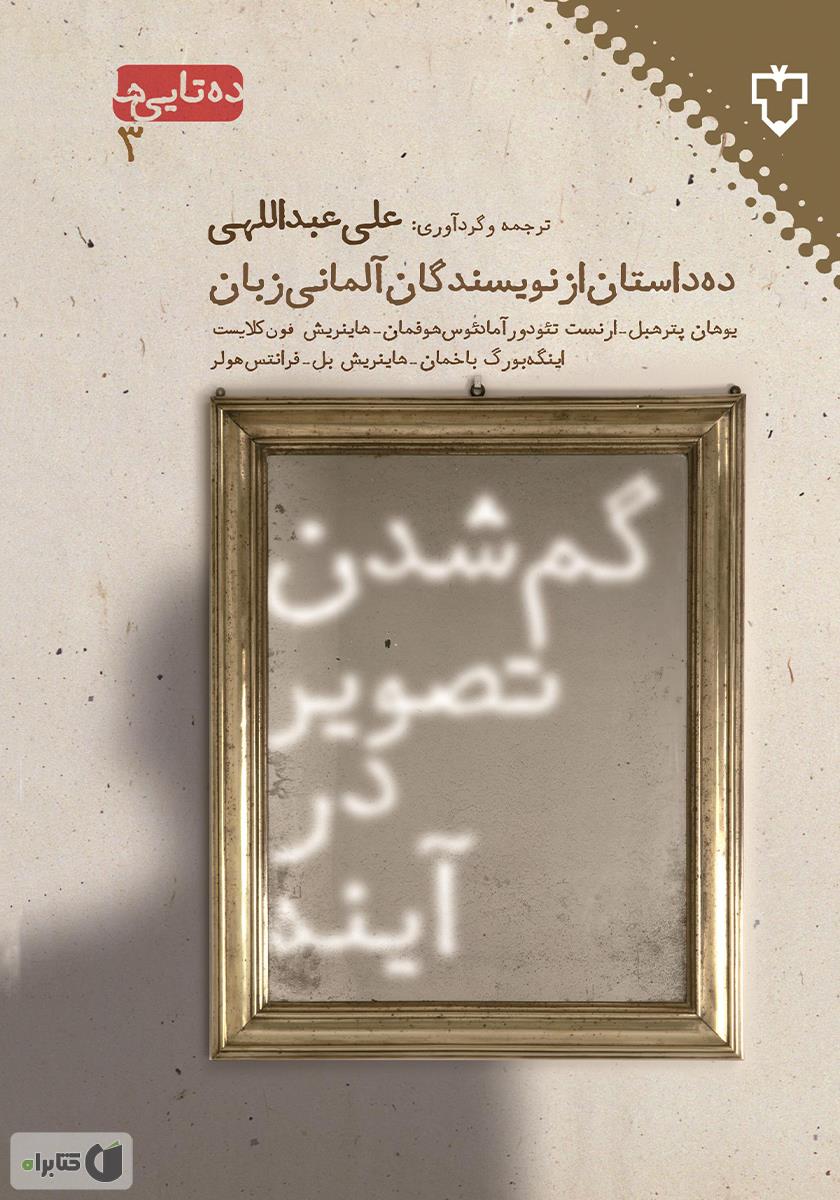 ده‌تایی‌ها
۳
ترجمه و گردآوری: علی عبداللهی
ده داستان از نویسندگان آلمانی زبان
یوهان پتر هبل - ارنست تئودور آمادئوس هوفمان - هاینریش فون کلایست
اینگه‌بورگ باخمان - هاینریش بل - فرانتس هولر
گم شدن
تصویر
در
آینه
کتابراه